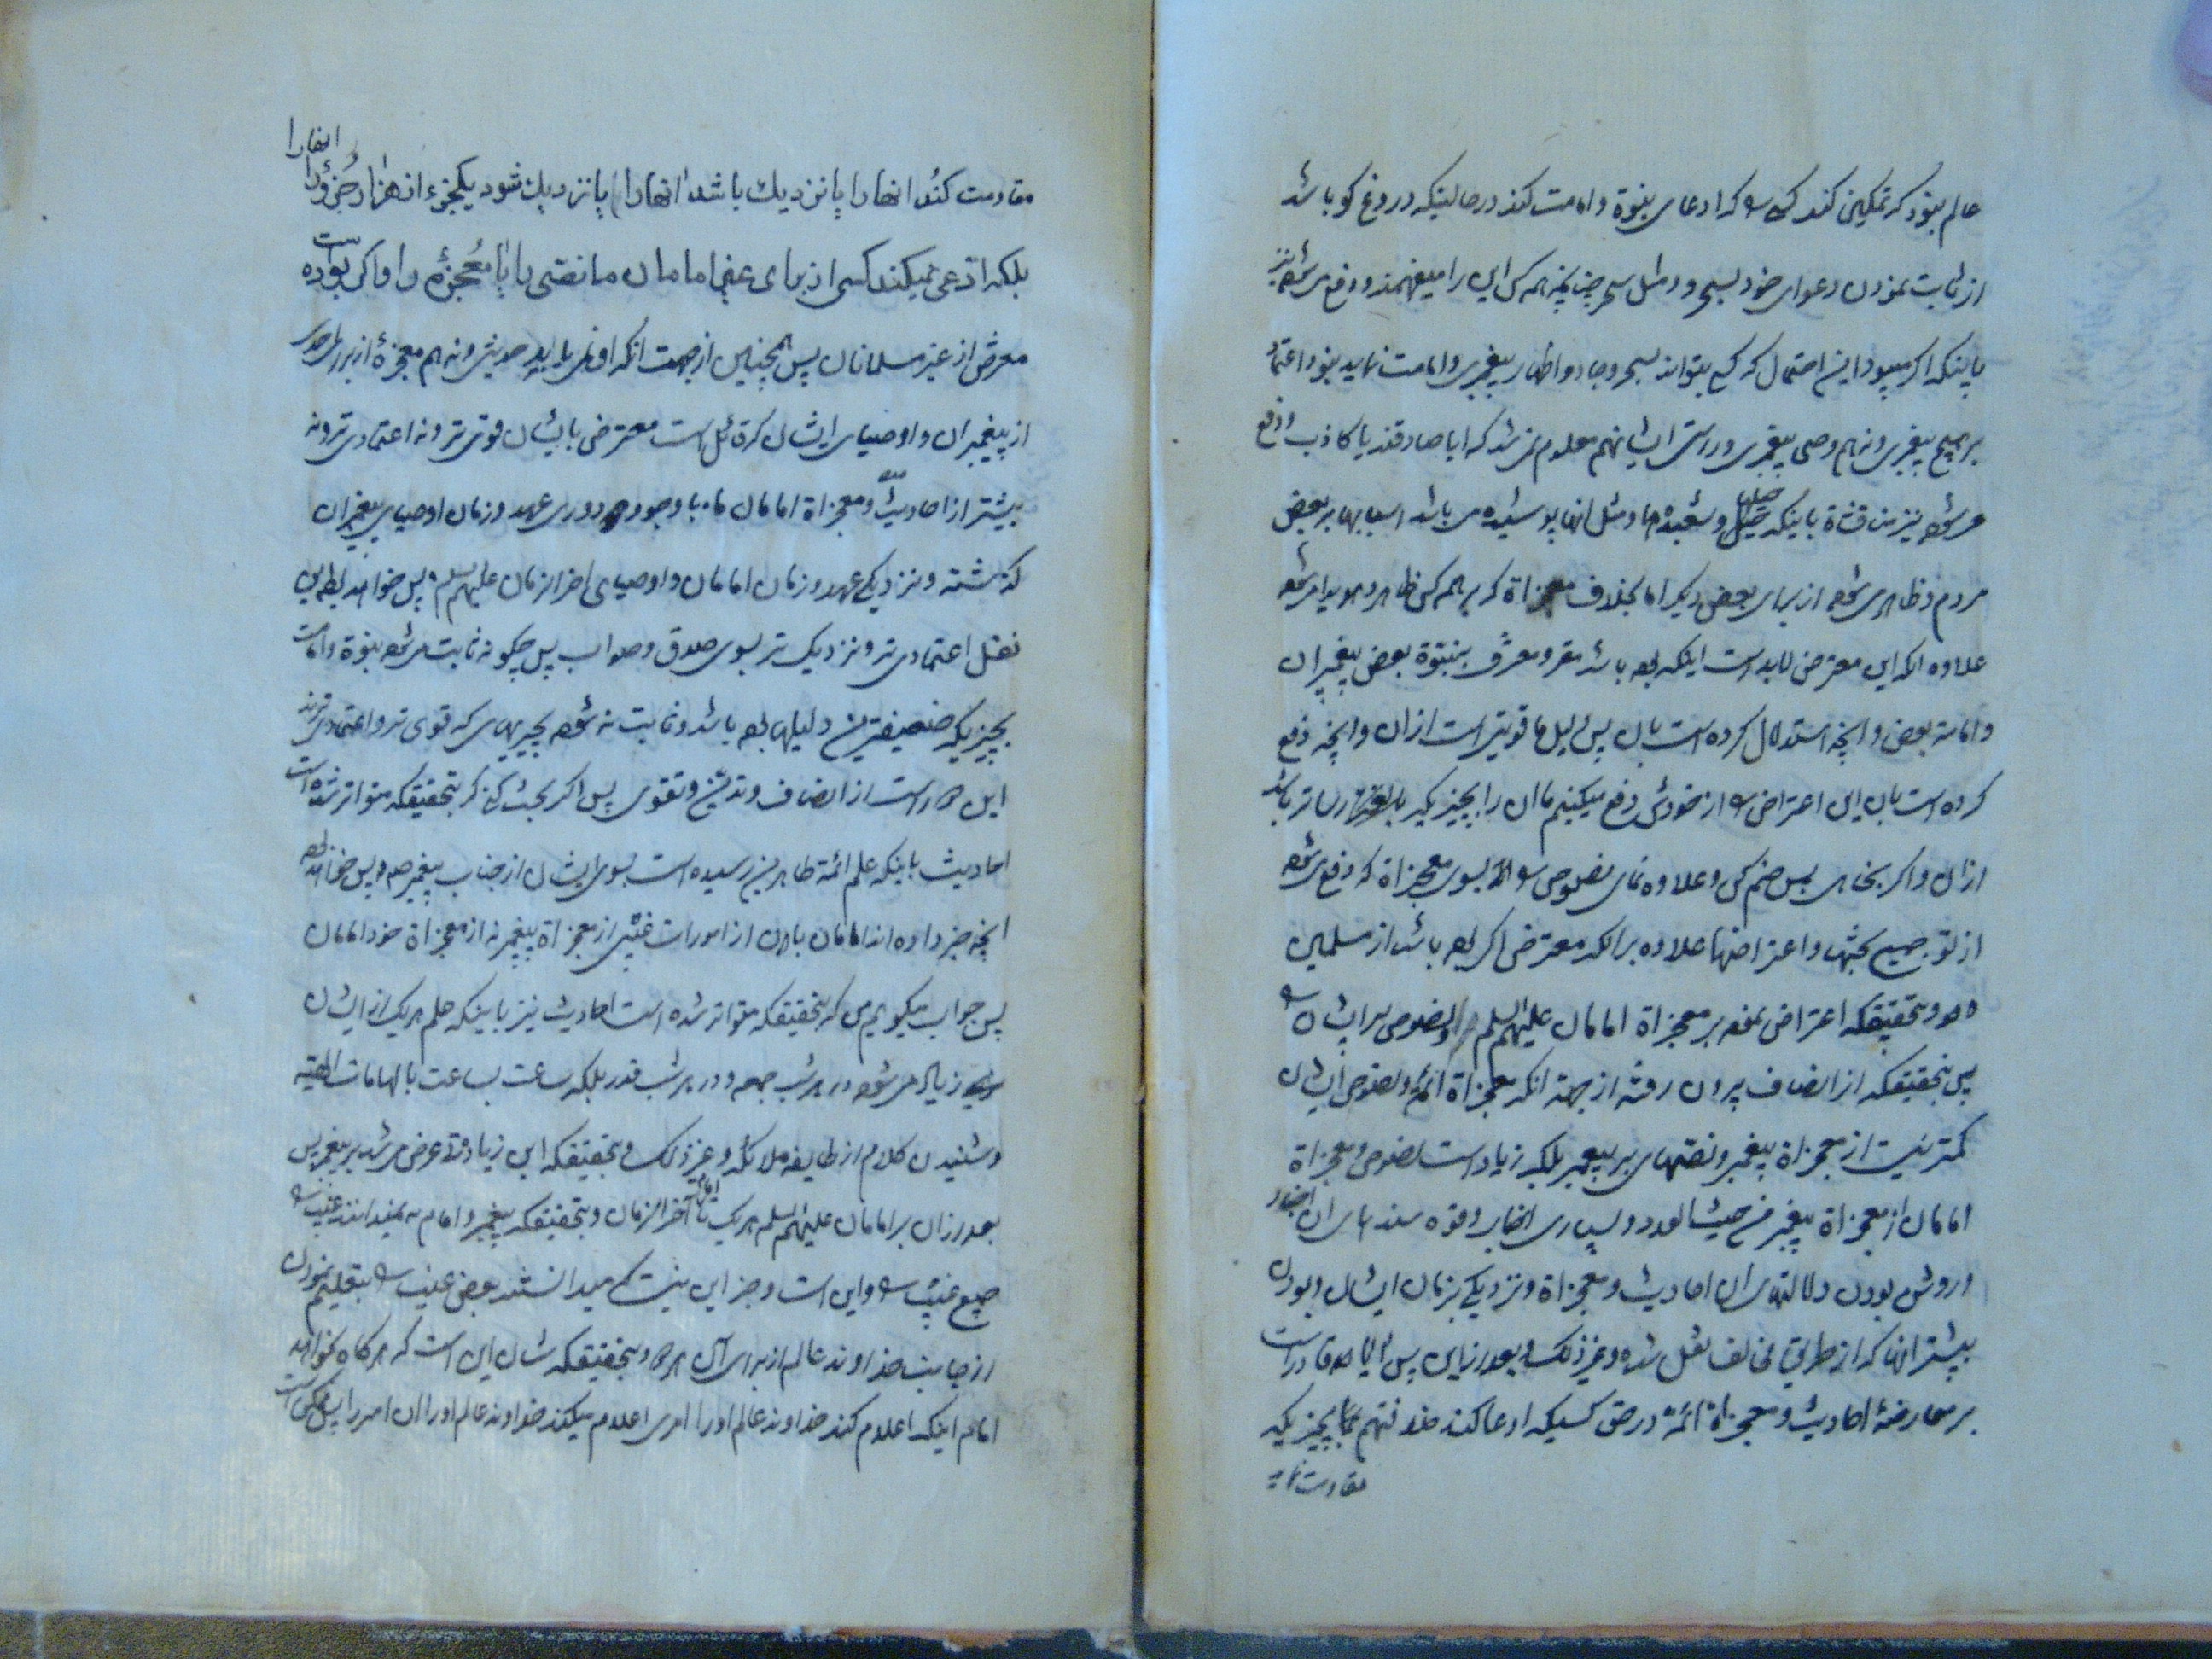 عالم بنود که تمکین کند کسی را که ادعای نبوة و امامت کند در حالتیکه دروغ کو باشد
از ثابت نمودن دعوای خود بسحر و مثل سحر چنانچه همه کس این را میفهمند و دفع میشود نیز
باینکه اکر میبود این احتمال که کسی بتواند بسحر و جادو اظهار پیغمبری و امامت نماید بنود اعتماد
بر هیچ پیغمبری و نه هم وصی پیغمبری و راستی ایشانهم معلوم نمی شد که ایا صادقند یا کاذب و دفع
میشود نیز مناقشاة باینکه حیل و شعبده ها و مثل انها پوشیده می باشد اسبابها بر بعض
مردم و ظاهر می شود از برای بعض دیکر اما بخلاف معجزاة که بر همه کس ظاهر و هویدا میشود
علاوه انکه این معترض لابد است اینکه بوده باشد مقر و معترف بنبوة بعض پیغمبران
و امامة بعض و انچه استدلال کرده است بان پس دلیل ما قویتر است از ان و انچه دفع
کرده است بان این اعتراض را از خودش دفع میکنیم ما ان را بچیزیکه رساتر باشد
از ان و اکر بخواهی پس ضم کن و علاوه نمای نصوص را بسوی معجزاة که دفع میشود
از تو جمیع بحثها و اعتراضها علاوه بر انکه معترض اکر بوده باشد از مسلمین
و بتحقیقکه اعتراض نموده بر معجزاة امامان علیهم السلم و نصوص بر ایشان را
پس بتحقیقکه از انصاف بیرون رفته از جهة انکه معجزاة ائمه و نصوص ایشان
کمتر نیست از معجزاة پیغمبر و نصهای بر پیغمبر بلکه زیاد است نصوص و معجزاة
امامان از معجزاة پیغمبر من حیث العدد و بسیاری اخبار و قوه سندهای ان اخبار
و روشن بودن دلالتهای ان احادیث و معجزاة و نزدیکی بزمان ایشان و بودن
بیشتر انها که از طریق مخالف نقل شده و غیر ذلک و بعد از این پس ایا قادر است
بر معارضهٔ احادیث و معجزاة ائمه در حق کسیکه ادعا کند خلافتهم بچیزیکه
مقاومت نماید
انها را
مقاومت کند انها را یا نزدیک باشد انها را یا نزدیک شود یکجزء از هزار جزو را
بلکه ادعی نمیکند کسی از برای غیر امامان ما نصی را یا معجزهٔ را و اکر بوده است
معترض از غیر مسلمانان پس همچنین از جهت انکه او نمی یابد حدیثی و نه هم معجزهٔ از برای احدی
از پیغمبران و اوصیای ایشان که قائل است معترض بایشان قوی تر و نه اعتمادی تر و نه
بیشتر از احادیث و معجزاة امامان ما با وجود دوری عهد و زمان اوصیای پیغمبران
کذشته و نزدیکی عهد و زمان امامان و اوصیای اخر الزمان علیهم السلم پس خواهد بود این
نقل اعتمادی تر و نزدیک تر بسوی صدق و صواب پس چکونه ثابت میشود نبوة و امامت
بچیزیکه ضعیفترین دلیلها بوده باشد و ثابت نه شود بچیزهای که قوی تر و اعتمادی ترند
این است از انصاف و تدین و تقوی پس اکر بحث کنی که بتحقیقکه متواتر شده است
احادیث باینکه علم ائمه طاهرین رسیده است بسوی ایشان از جناب پیغمبر ص پس خواهد بود
انچه خبر داده اند امامان بان از امورات غیبی از معجزاة پیغمبر نه از معجزاة خود امامان
پس جواب میکویم من که بتحقیقکه متواتر شده است احادیث نیز باینکه علم هر یک از ایشان
زیاد می شود در هر شب جمعه و در هر شب قدر بلکه ساعت بساعت بالهامات الهیه
و شنیدن کلام از طایفه ملائکه و غیر ذلک و بتحقیقکه این زیادة عرض می شد بر پیغمبر پس
بعد از ان بر امامان علیهم السلم هر یک تا امام آخر الزمان و بتحقیقکه پیغمبر و امام نمیدانند غیب را
جمیع غیب را و این است و جز این نیست که میدانستند بعض غیب را بتعلیم نمودن
از جانب خداوند عالم از برای و بتحقیقکه شان این است که هر کاه بخواهد
امام اینکه اعلام کند خداوند عالم او را امری اعلام میکند خداوند عالم او را ان امر را پس